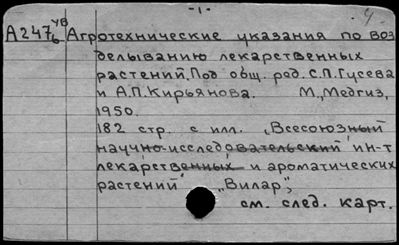 -1-
УВ
А247 Агротехнические указания по воз
6
делыванию лекарственных
растений. Под общ. ред. С.П.Гусева
и А.П.Кирьянова. М., Медгиз,
1950.
182 стр. с илл. "Всесоюзный
научно-исследовательский ин-т
лекарственных и ароматических
растений "Вилар",
см. след. карт.